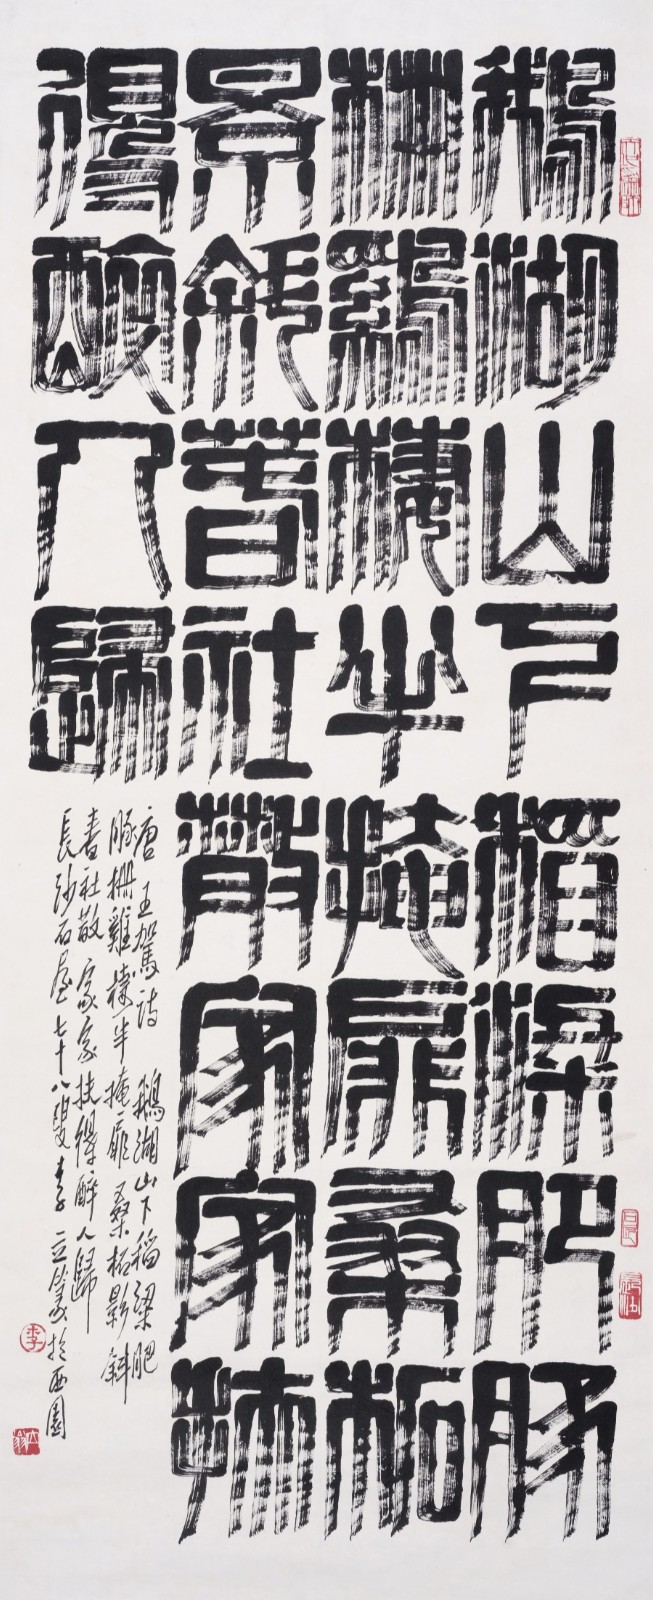 鵝湖山下稻粱肥豚
柵鷄棲半掩扉桑柘
景斜春社散家家扶
得醉人歸
唐王駕詩 鵝湖山下稻粱肥
豚柵雞棲半掩扉桑柘影斜
春社散家家扶得醉人歸
長沙石屋七十八叟李立篆於西園
李
立翁
長沙